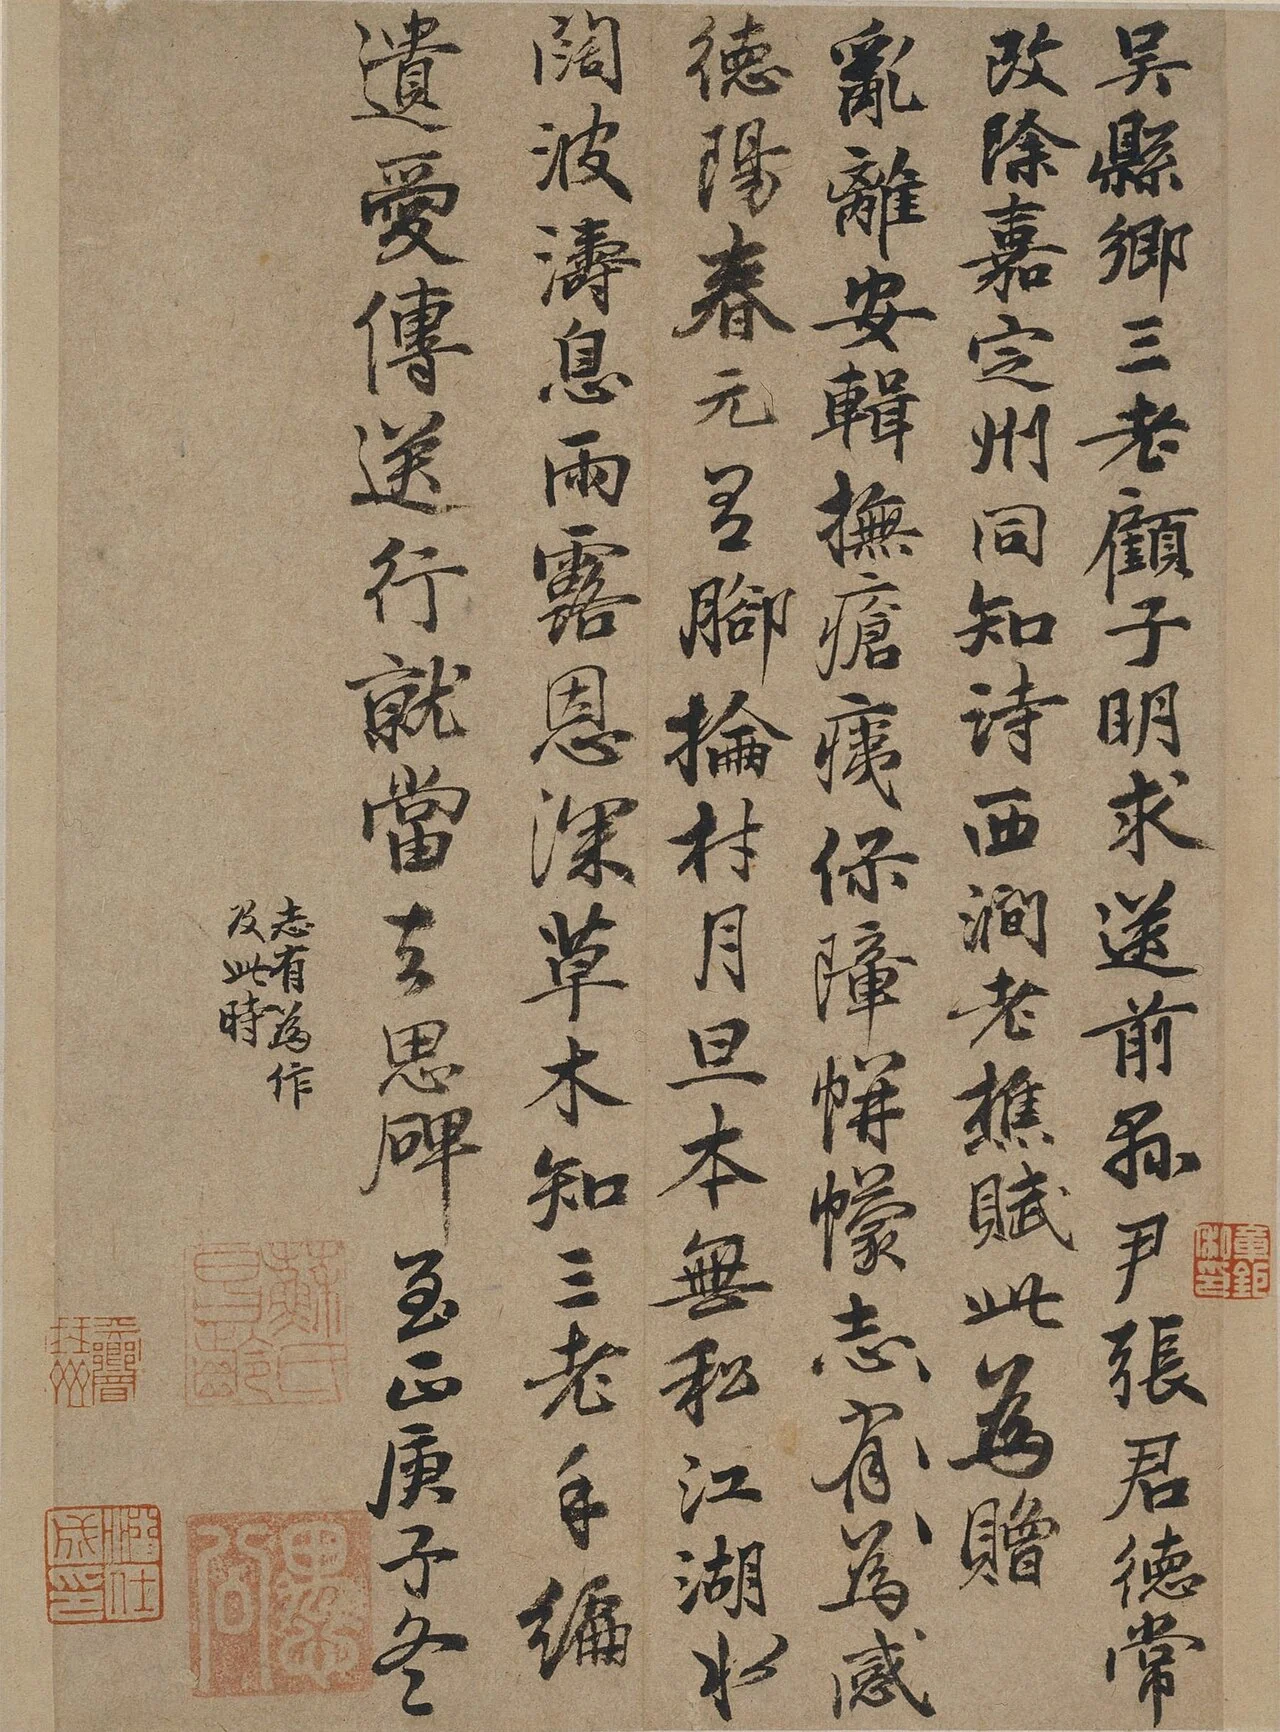 吴縣鄉三老顧子明求送前縣尹張君德常
改除嘉定州同知诗西澗老樵賦此為贈
亂離安輯撫瘡痍保障帡幪志有為感
德陽春元有腳掄材月旦本無私江湖水
闊波濤息雨露恩深草木知三老手編
遺愛傳送行就當去思碑至正庚子冬
志有為作
及此時
蘇氏